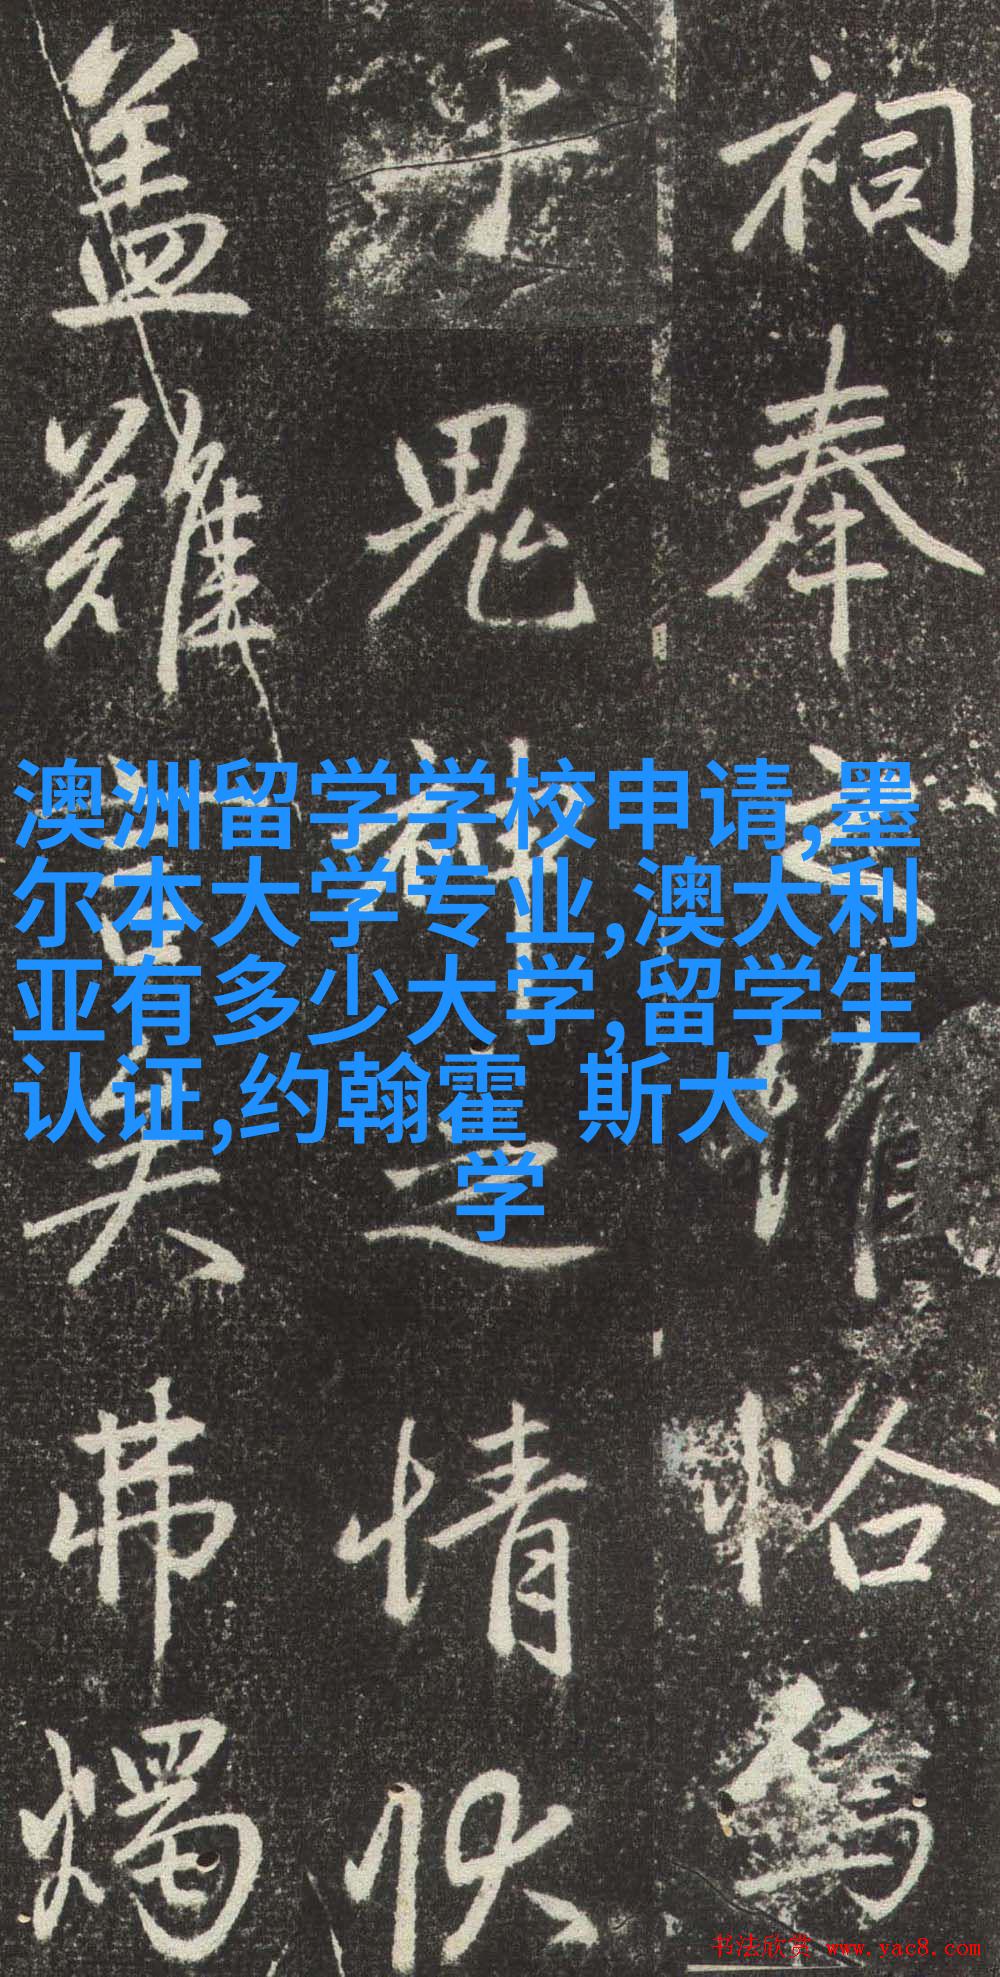 祠奉
恪焉
于鬼神之情状
盖难言矣
弗烛
澳洲留学学校申请,墨
尔本大学专业,澳大利
亚有多少大学,留学生
认证,约翰霍 斯大
学
书法欣赏 www.yac8.com